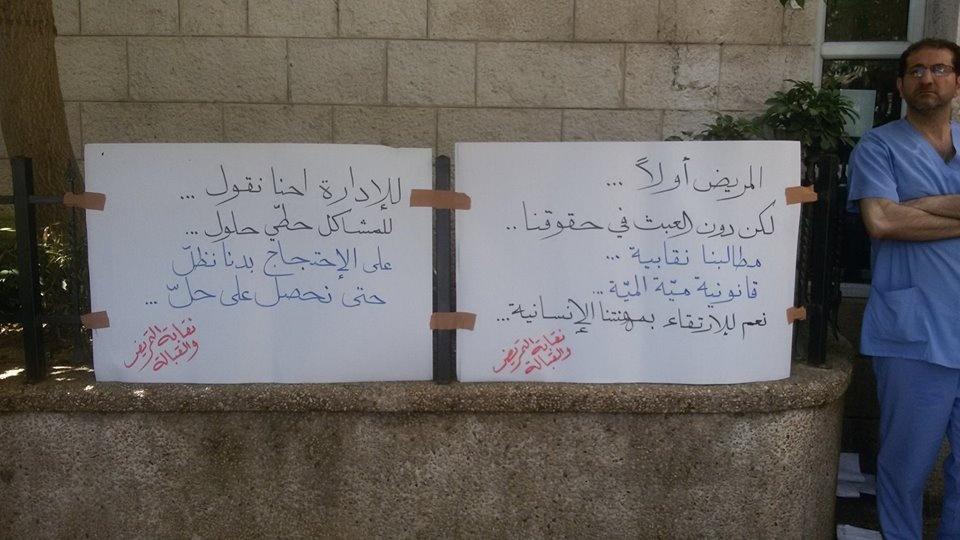 المريض أولاً ...
لكن دون العبث في حقوقنا ..
مطالبنا نقابية ...
قانونية ميّة الميّة...
نعم للإرتقاء بمهنتنا الإنسانية...
نقابة التمريض
والقبالة
للإدارة احنا نقول ...
للمشاكل حطّي حلول ...
على الإحتجاج بدنا نظلّ
حتى نحصل على حلّ ...
نقابة التمريض
والقبالة